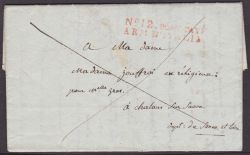 No 12.
ARM. D'ITALIE
A Ma dame
Madame jouffroi ex religieuse
pour
à chalons sur Saone
Dept. de Saone et Loire